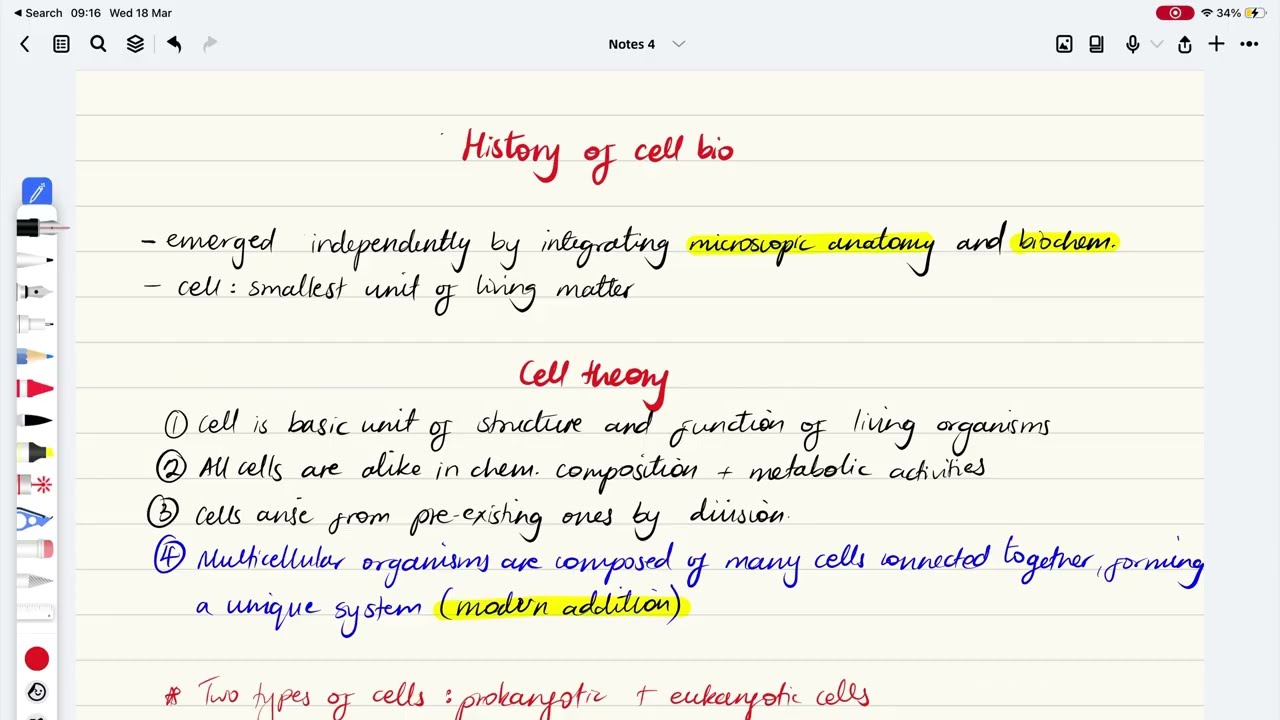 Search 09:16 Wed 18 Mar 34%
Notes 4
History of cell bio
- emerged independently by integrating microscopic anatomy and biochem.
- cell : smallest unit of living matter
Cell theory
① Cell is basic unit of structure and function of living organisms
② All cells are alike in chem. composition + metabolic activities
③ Cells arise from pre-existing ones by division.
④ Multicellular organisms are composed of many cells connected together, forming
a unique system (modern addition)
* Two types of cells : prokaryotic + eukaryotic cells